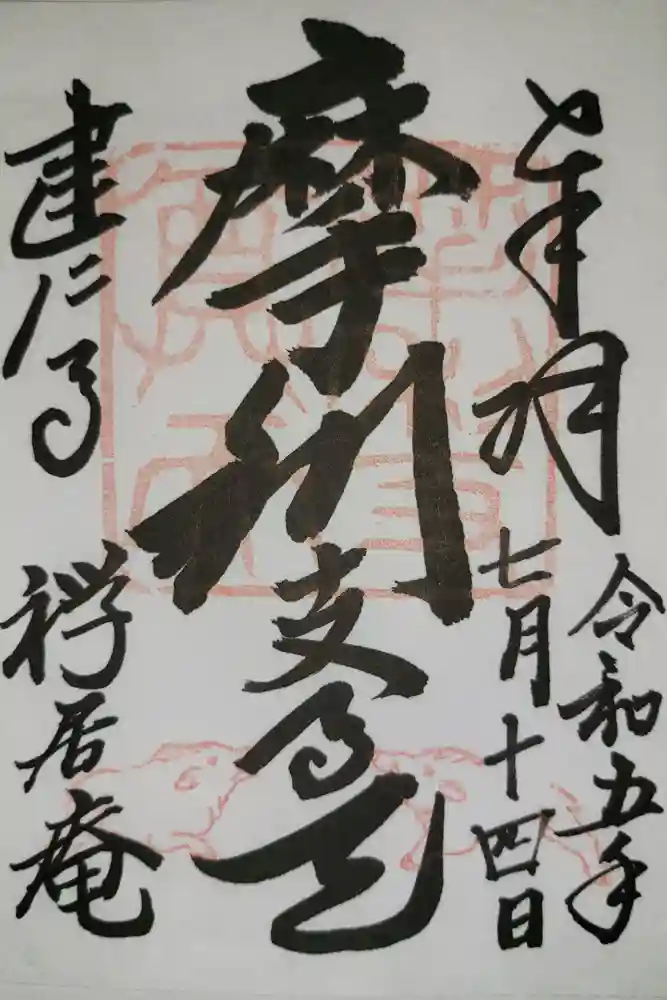 奉拝
令和五年
七月十四日
摩利支尊天
建仁寺 禅居庵